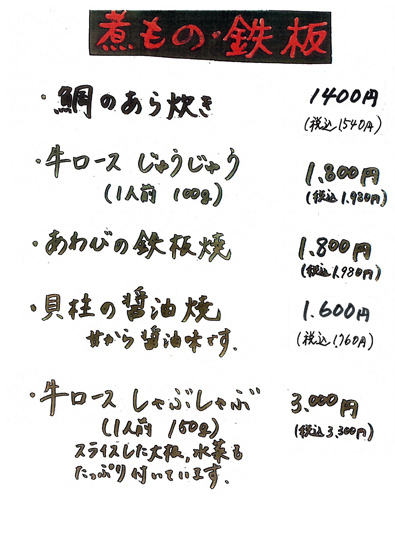 煮もの・鉄板
・鯛のあら炊き 1400円
(税込1540円)
・牛ロース じゅうじゅう 1.800円
(1人前 100g) (税込1.980円)
・あわびの鉄板焼 1.800円
(税込1.980円)
・貝柱の醤油焼 1.600円
甘から醤油味です. (税込1,760円)
・牛ロース しゃぶしゃぶ 3.000円
(1人前 150g) (税込3.300円)
スライスした大根,水菜も
たっぷり付いています.